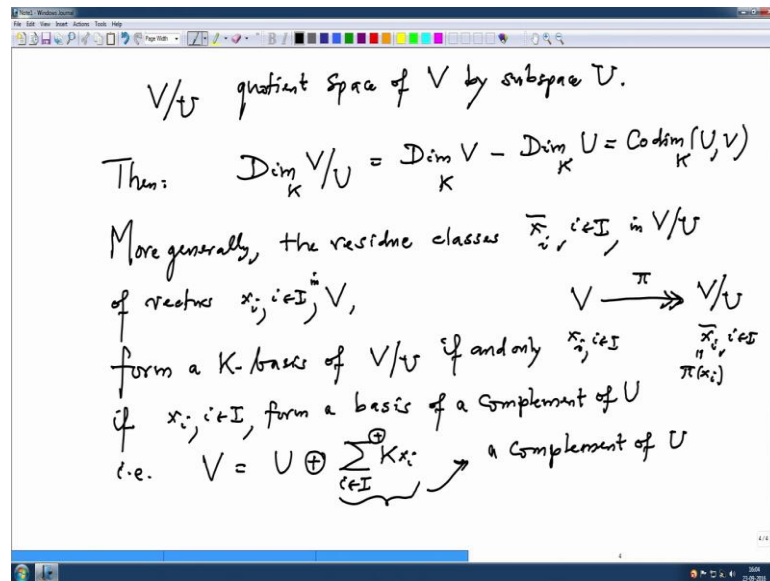 Note1 - Windows Journal
File Edit View Insert Actions Tools Help
Page Width
V/U quotient space of V by subspace U.
Then: Dim_K V/U = Dim_K V - Dim_K U = Codim_K (U, V)
More generally, the residue classes x̄_i, i∈I, in V/U
of vectors x_i, i∈I, in V,
V —π↠ V/U
form a K-basis of V/U if and only
x_i, i∈I x̄_i, i∈I
π(x_i)
if x_i, i∈I, form a basis of a complement of U
i.e. V = U ⊕ ∑^⊕_{i∈I} K x_i → a complement of U
4/4
4
16:04